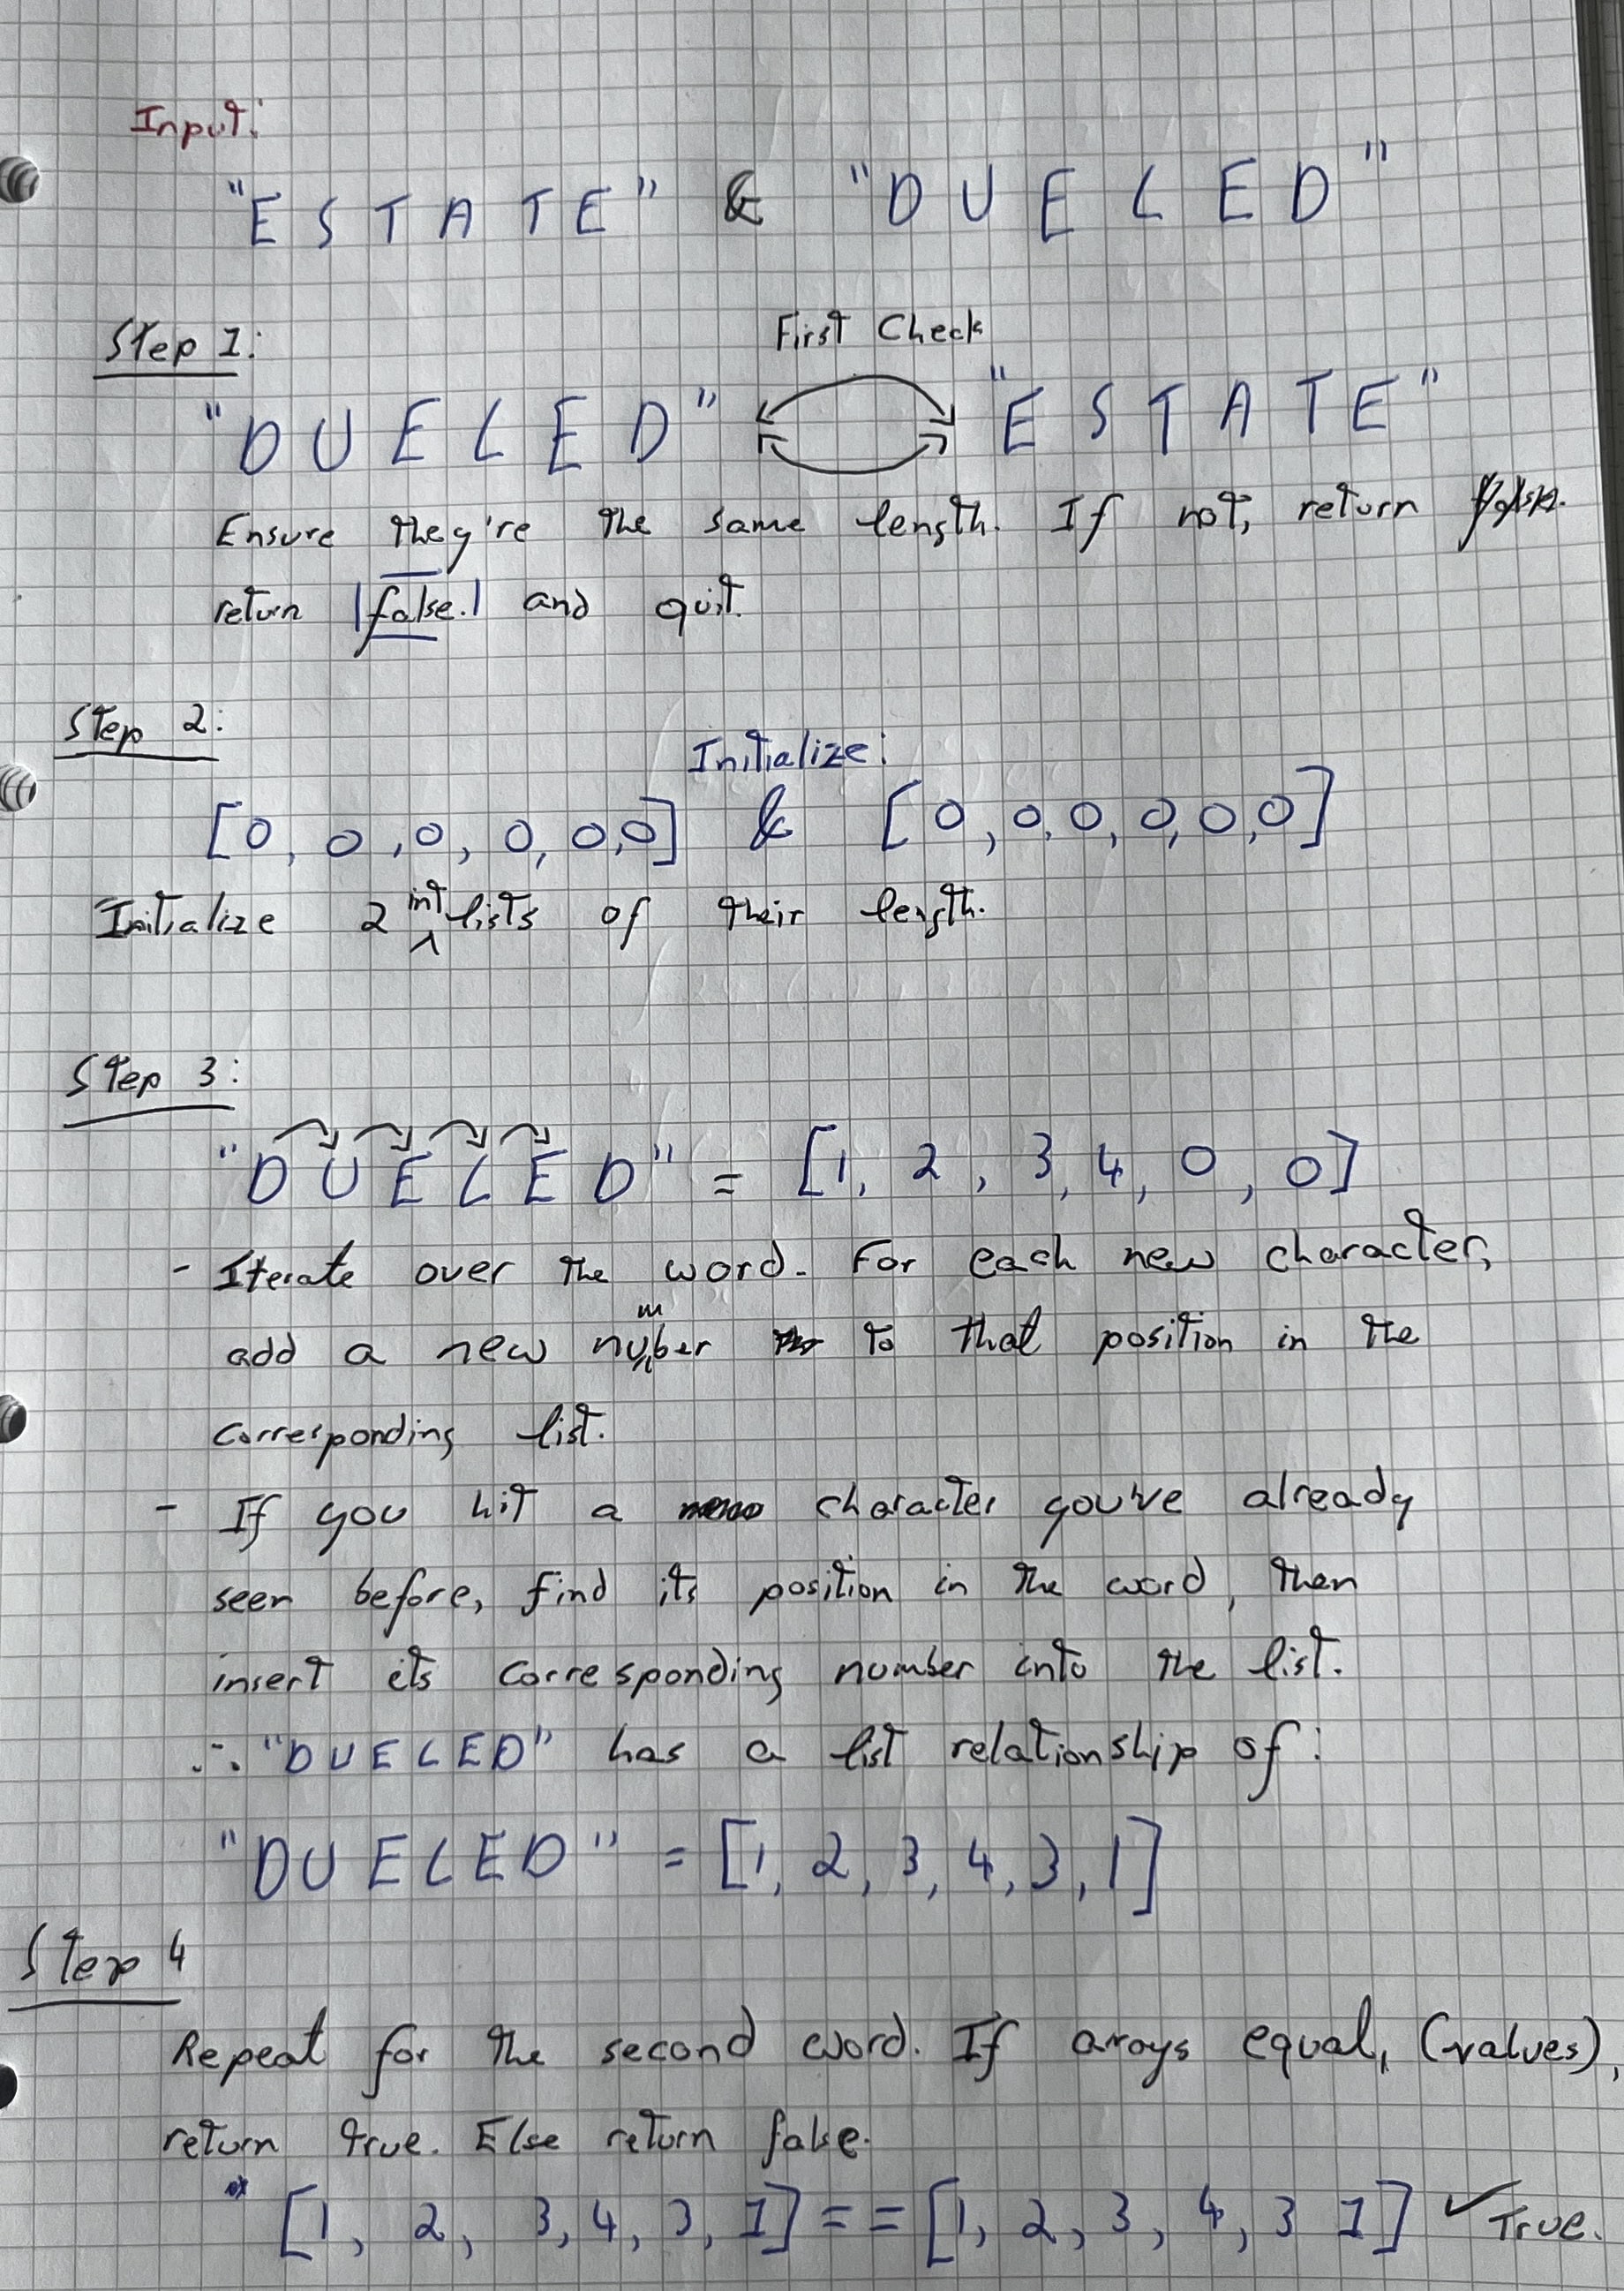 Input:
"ESTATE" & "DUELED"
Step 1:
First Check
"DUELED" "ESTATE"
Ensure they're the same length. If not, return
return false. and quit.
Step 2:
Initialize:
[0, 0, 0, 0, 0, 0] & [0, 0, 0, 0, 0, 0]
Initialize 2 int lists of their length.
Step 3:
"DUELED" = [1, 2, 3, 4, 0, 0]
- Iterate over the word. For each new character,
add a new number to that position in the
corresponding list.
- If you hit a character you've already
seen before, find its position in the word, then
insert its corresponding number into the list.
∴ "DUELED" has a list relationship of:
"DUELED" = [1, 2, 3, 4, 3, 1]
Step 4
Repeat for the second word. If arrays equal, (values),
return true. Else return false.
[1, 2, 3, 4, 3, 1] == [1, 2, 3, 4, 3 1] ✓ True.